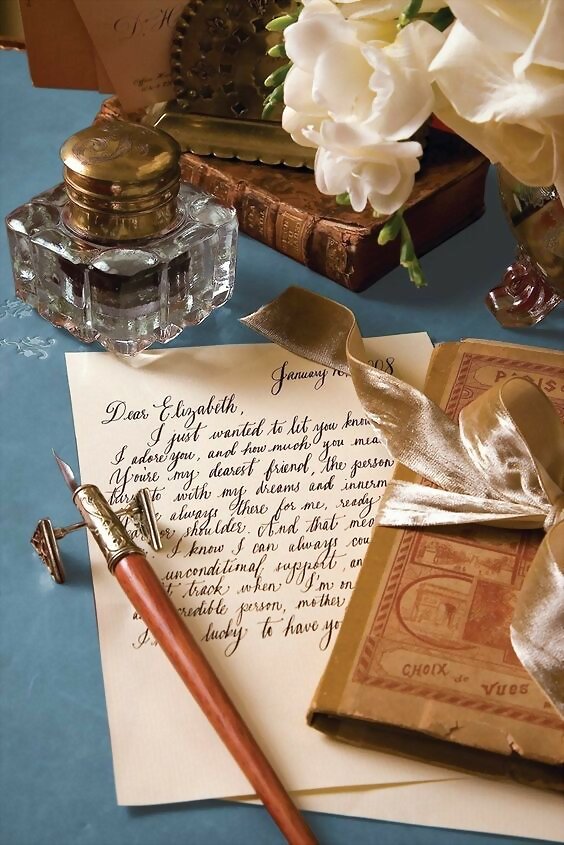 D. H
January
Dear Elizabeth,
I just wanted to let you know
I adore you, and how much you mea
You're my dearest friend, the person
to with my dreams and innerm
always there for me, ready
or shoulder. And that mea
I know I can always cou
unconditional support, an
track when I'm on
credible person, mother
lucky to have yo
PARIS
CHOIX de VUES